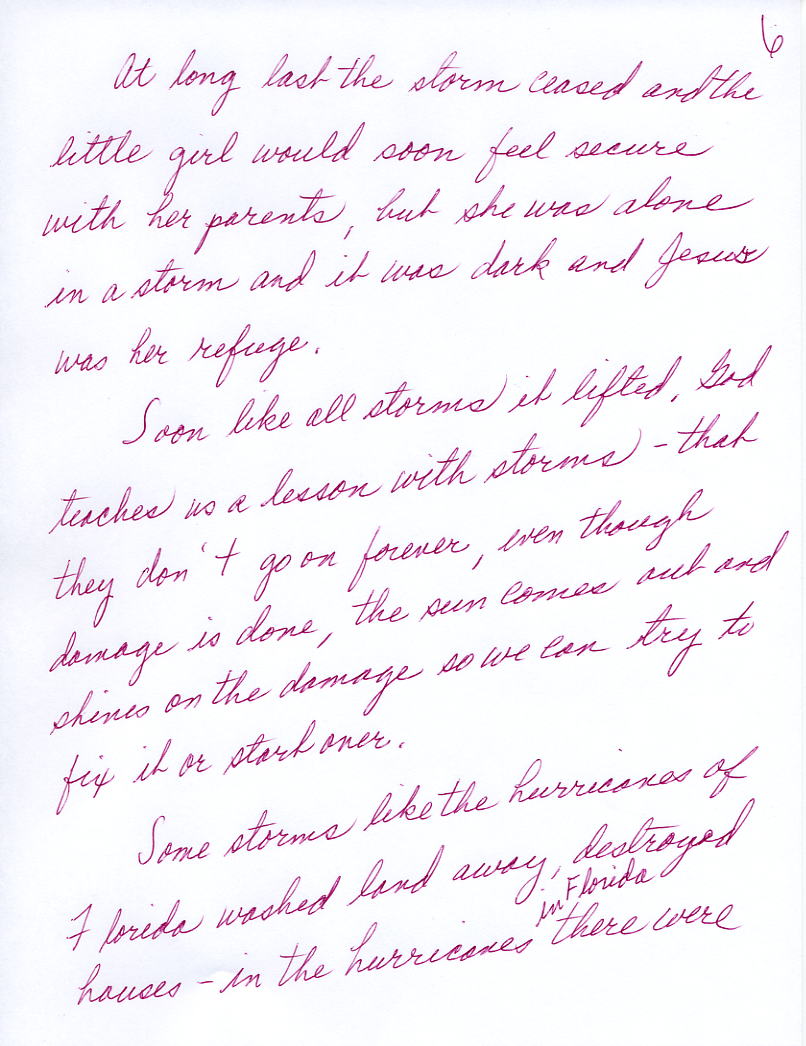 6
At long last the storm ceased and the
little girl would soon feel secure
with her parents, but she was alone
in a storm and it was dark and Jesus
was her refuge.
Soon like all storms it lifted. God
teaches us a lesson with storms - that
they don't go on forever, even though
damage is done, the sun comes out and
shines on the damage so we can try to
fix it or start over.
Some storms like the hurricanes of
Florida washed land away, destroyed
in Florida
houses - in the hurricanes there were